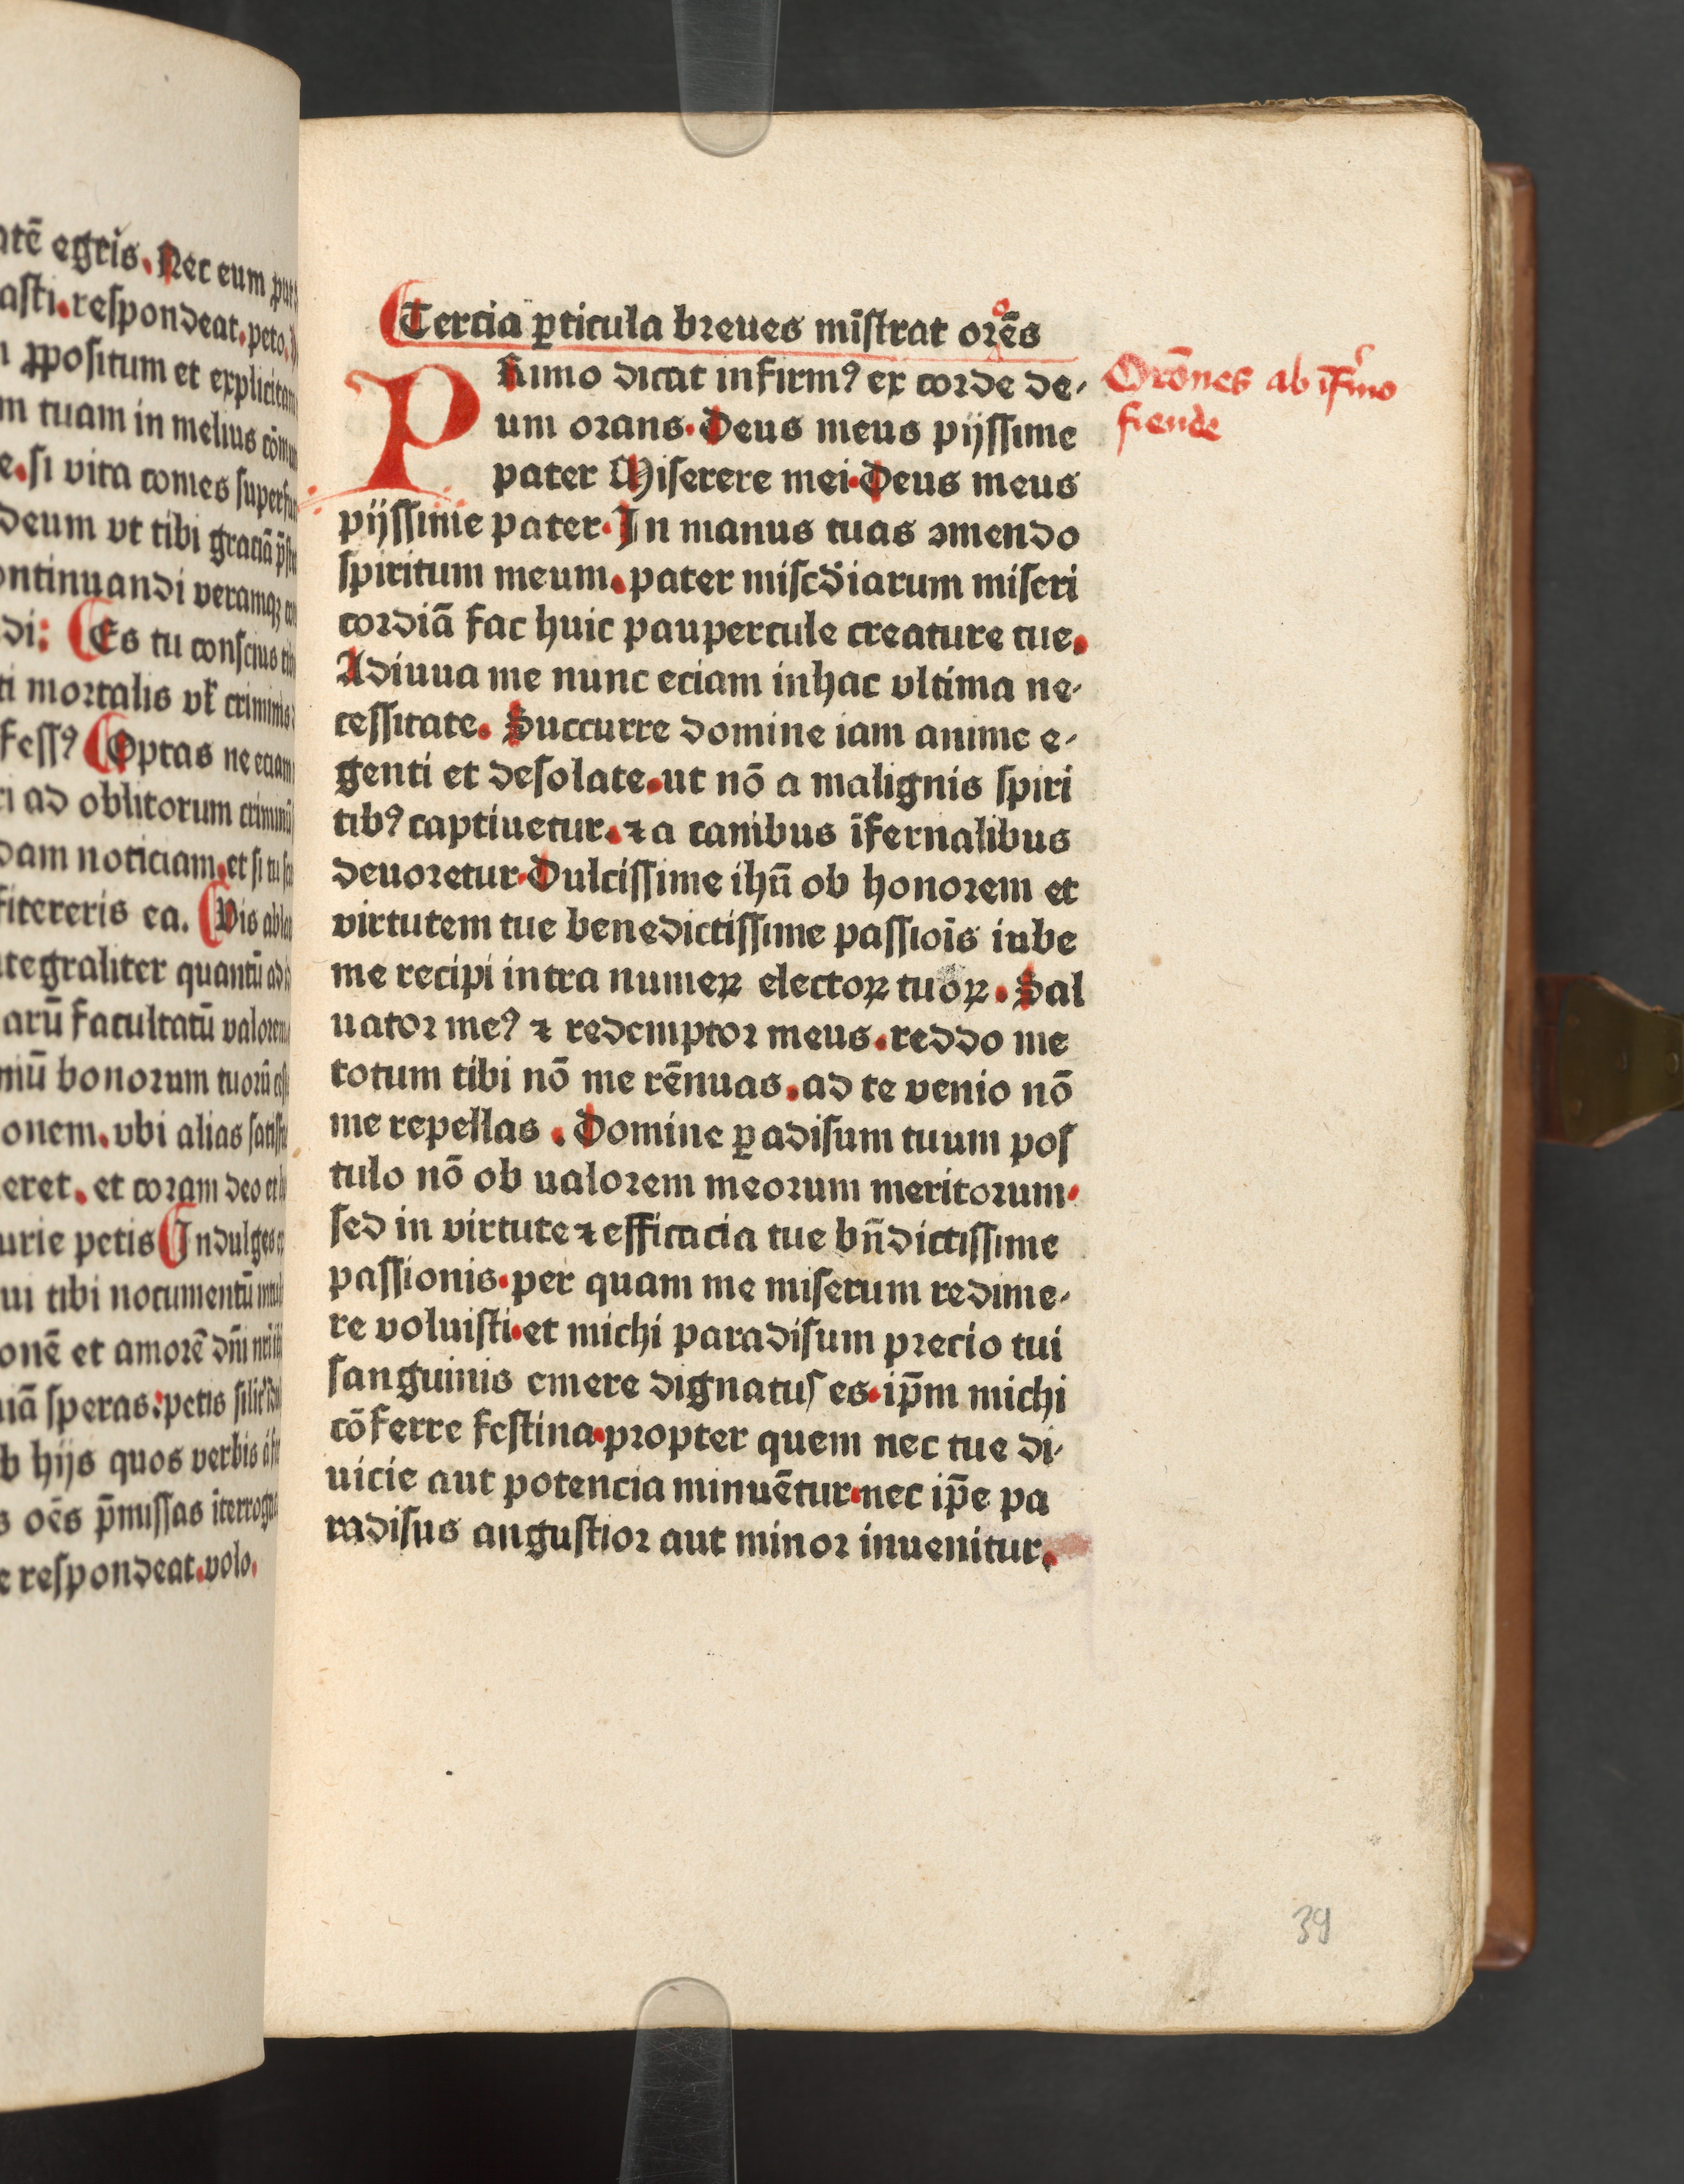 atē egris. Nec eum
asti. respondeat. peto.
ꝓpositum et explicitam
m tuam in melius
e. si vita comes
deum vt tibi graciā
ontinuandi veramqꝫ
di: Es tu conscius
ti mortalis vl̄ criminis
fessꝰ Optas ne eciam
ri ad oblitorum
dam noticiam. et si tu
fitereris ea. Vis
tegraliter quantū ad
arū facultatū valorem
mū bonorum tuorū
onem. vbi alias
eret. et coram deo et
urie petis Indulges
ui tibi nocumentū
onē et amorē dn̄i
iā speras: petis
b hijs quos verbis
s oēs p̄missas
e respondeat. volo.
Tercia ꝑticula breues mīstrat orēs
PRimo dicat infirmꝰ ex corde de-
um orans. Deus meus pijssime
pater Miserere mei. Deus meus
pijssime pater. In manus tuas ꝯmendo
spiritum meum. pater misc̄diarum miseri
cordiā fac huic paupercule creature tue.
Adiuua me nunc eciam inhac vltima ne-
cessitate. Succurre domine iam anime e-
genti et desolate. ut nō a malignis spiri
tibꝰ captiuetur. ⁊ a canibus īfernalibus
deuoretur. Dulcissime ihū ob honorem et
virtutem tue benedictissime passiōis iube
me recipi intra numeꝝ electoꝝ tuoꝝ. Sal
uator meꝰ ⁊ redemptor meus. reddo me
totum tibi nō me rēnuas. ad te venio nō
me repellas. Domine ꝑadisum tuum pos
tulo nō ob ualorem meorum meritorum.
sed in virtute ⁊ efficacia tue bn̄dictissime
passionis. per quam me miserum redime-
re voluisti. et michi paradisum precio tui
sanguinis emere dignatus es. ip̄m michi
cōferre festina. propter quem nec tue di-
uicie aut potencia minuētur. nec ip̄e pa
radisus angustior aut minor inuenitur.
Orōnes ab īfirmo
fiende
39